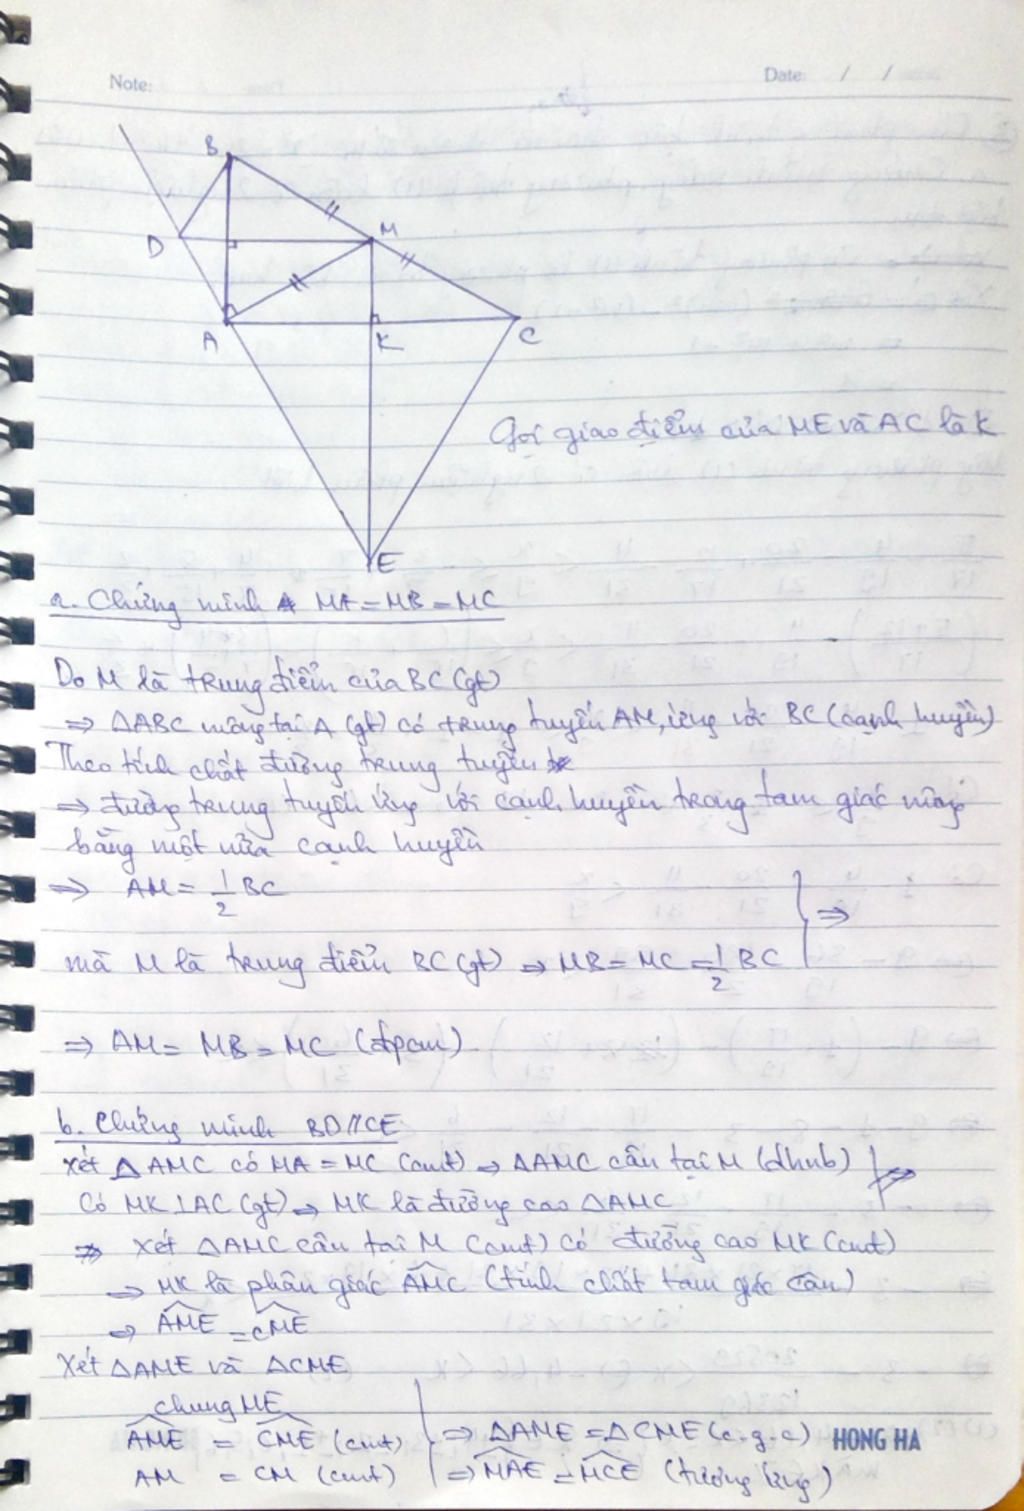 Note:
Date: / /
B
D
M
A
K
C
Gọi giao điểm của ME và AC là K
E
a. Chứng minh MA = MB = MC
Do M là trung điểm của BC (gt)
⇒ ΔABC vuông tại A (gt) có trung tuyến AM, ứng với BC (cạnh huyền)
Theo tính chất đường trung tuyến
⇒ đường trung tuyến ứng với cạnh huyền trong tam giác vuông
bằng một nửa cạnh huyền
⇒ AM = 1/2 BC
⇒
mà M là trung điểm BC (gt) ⇒ MB = MC = 1/2 BC
⇒ AM = MB = MC (đpcm)
b. Chứng minh BD // CE
Xét ΔAMC có MA = MC (cmt) ⇒ ΔAMC cân tại M (dhnb)
Có MK ⊥ AC (gt) ⇒ MK là đường cao ΔAMC
⇒ Xét ΔAMC cân tại M (cmt) có đường cao MK (cmt)
⇒ MK là phân giác AMC (tính chất tam giác cân)
⇒ AME = CME
Xét ΔAME và ΔCME
chung ME
AME = CME (cmt) ⇒ ΔAME = ΔCME (c.g.c)
HONG HA
AM = CM (cmt) ⇒ MAE = MCE (tương ứng)